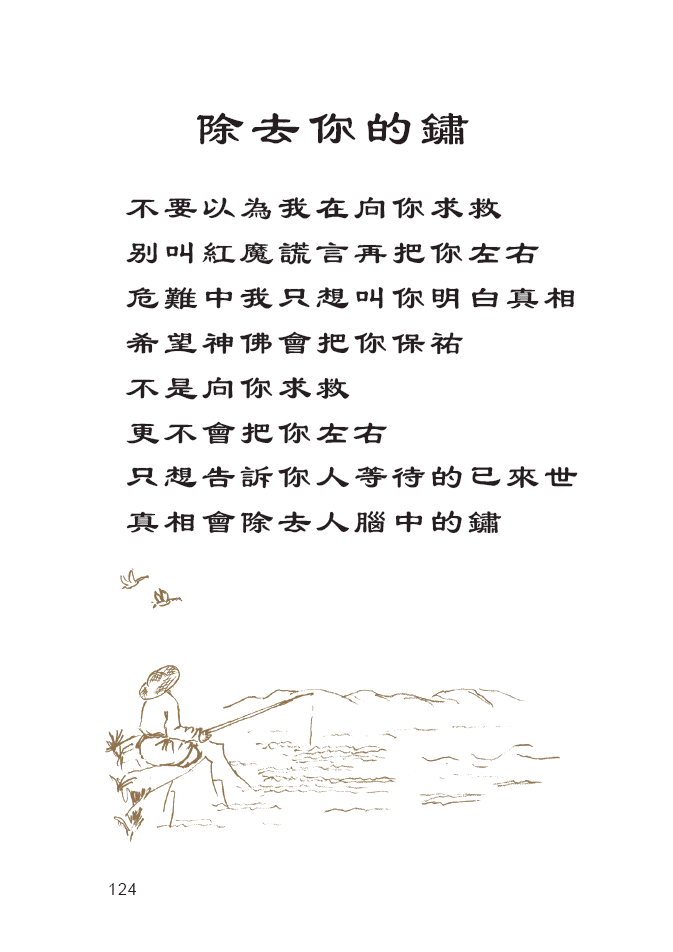 除去你的鏽
不要以為我在向你求救
别叫紅魔謊言再把你左右
危難中我只想叫你明白真相
希望神佛會把你保祐
不是向你求救
更不會把你左右
只想告訴你人等待的已來世
真相會除去人腦中的鏽
124